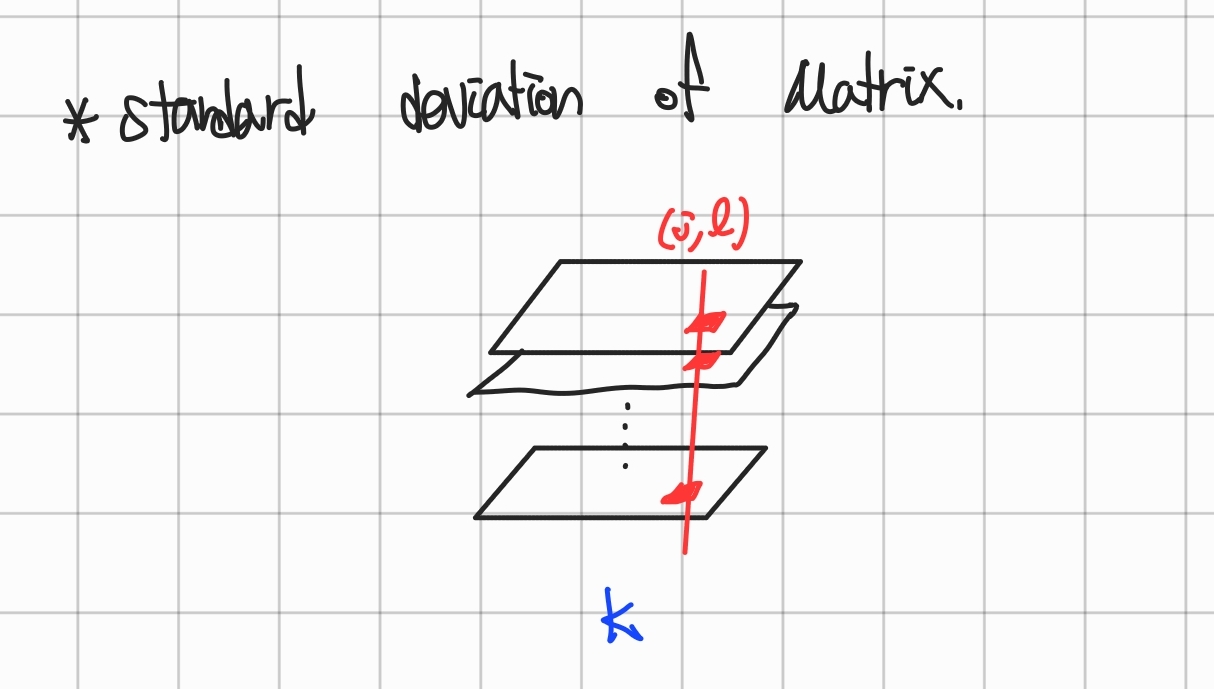 * standard deviation of Matrix.
(i, l)
k